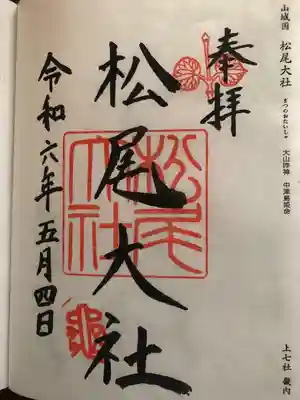 山城国 松尾大社 まつのおたいしゃ 大山咋神 中津島姫命
上七社 畿内
奉拝
松尾大社
松尾大社
令和六年五月四日